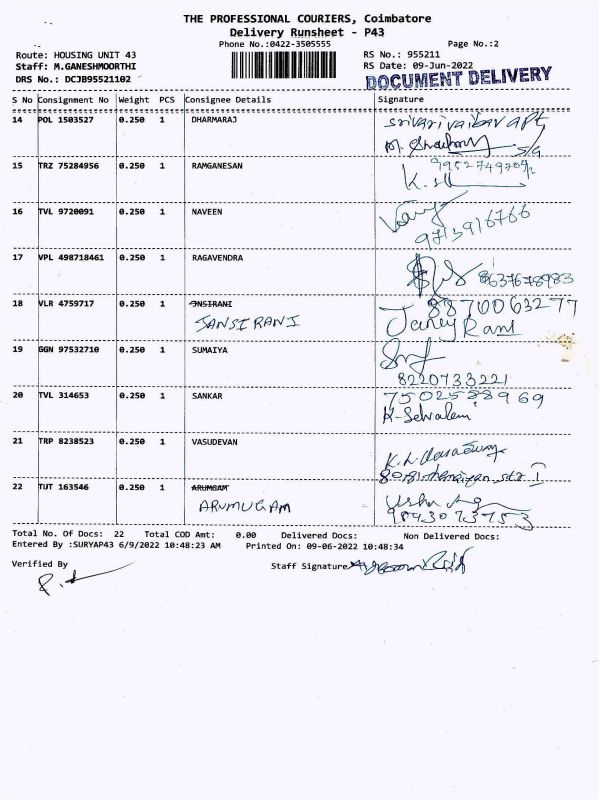 THE PROFESSIONAL COURIERS, Coimbatore
Delivery Runsheet - P43
Phone No.:0422-3505555
Page No.:2
Route: HOUSING UNIT 43
RS No.: 955211
Staff: M.GANESHMOORTHI
RS Date: 09-Jun-2022
DRS No.: DCJB95521102
DOCUMENT DELIVERY
S No Consignment No Weight PCS Consignee Details Signature
14 POL 1503527 0.250 1 DHARMARAJ
15 TRZ 75284956 0.250 1 RAMGANESAN
16 TVL 9720091 0.250 1 NAVEEN
9713916766
17 VPL 498718461 0.250 1 RAGAVENDRA
8637678983
18 VLR 4759717 0.250 1 JNSIRANI
8870063277
JANSI RANI
19 GGN 97532710 0.250 1 SUMAIYA
8220733221
20 TVL 314653 0.250 1 SANKAR
7502588969
21 TRP 8238523 0.250 1 VASUDEVAN
22 TUT 163546 0.250 1 ARUMGAM
ARUMUGAM
Total No. Of Docs: 22 Total COD Amt: 0.00 Delivered Docs: Non Delivered Docs:
Entered By :SURYAP43 6/9/2022 10:48:23 AM Printed On: 09-06-2022 10:48:34
Verified By
Staff Signature